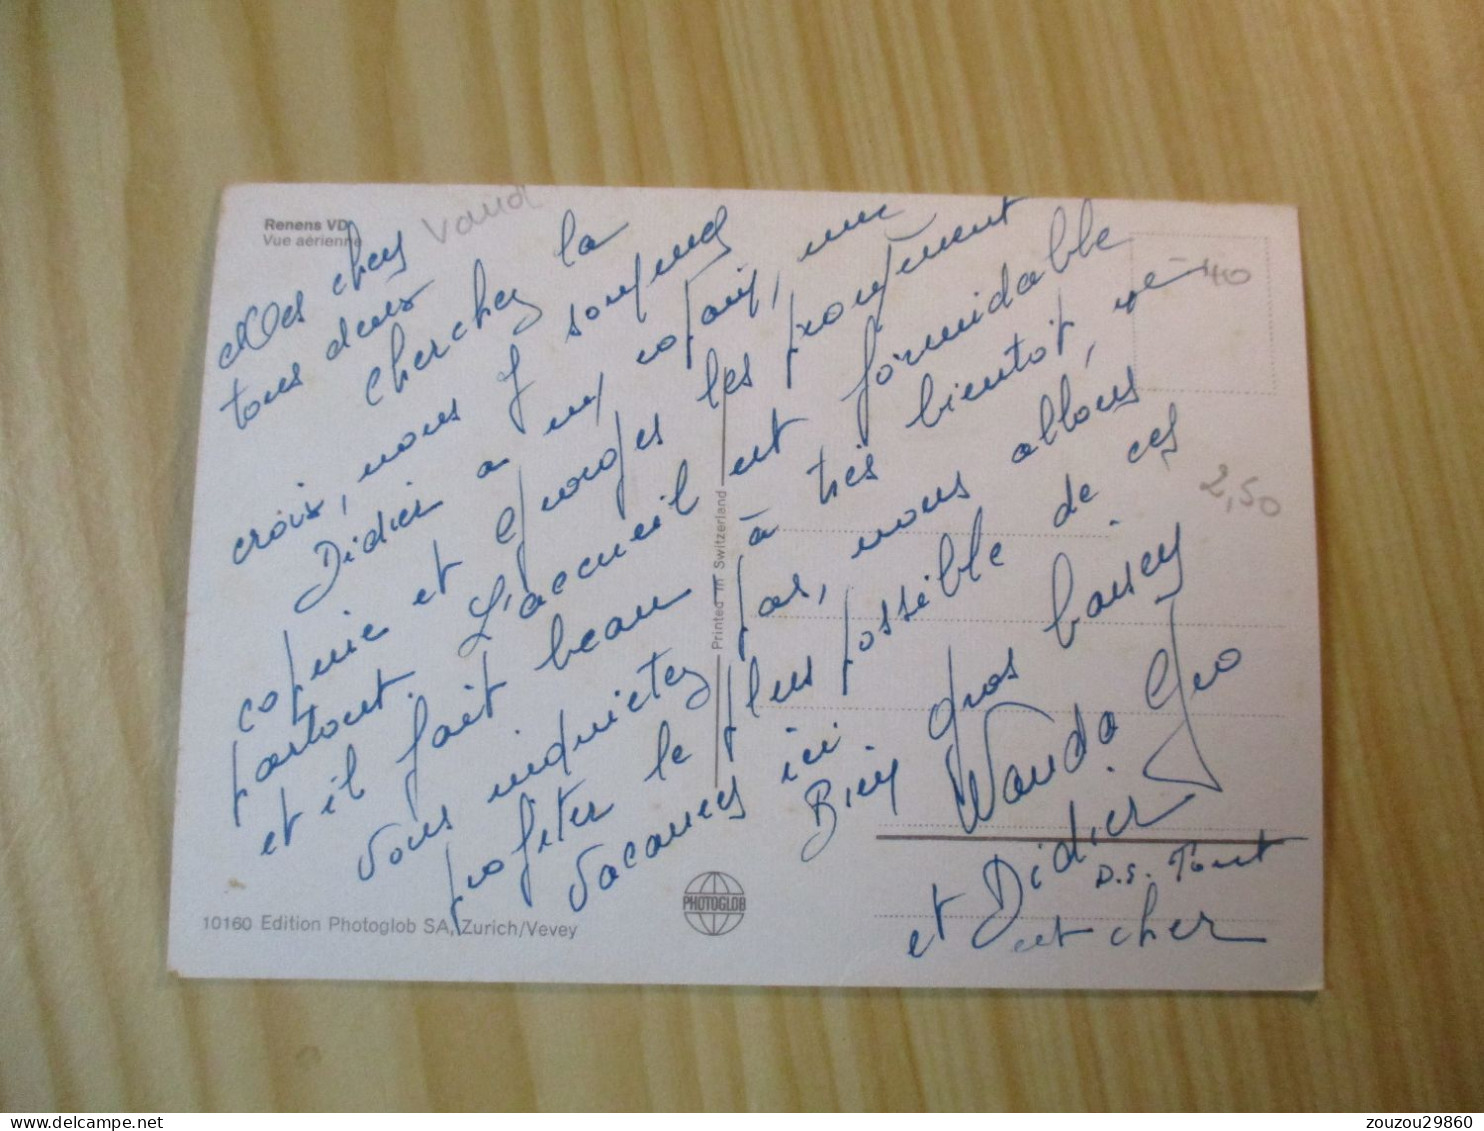 Renens VD
Vue aérienne
Vaud
40
2,50
Mes chers
tous deux
cherchez la
croix, nous y sommes
Didier a un copain, une
copine et Georges les promènent
partout. L'accueil est formidable
et il fait beau, à très bientôt, ne
vous inquiétez pas, nous allons,
profiter le plus possible de ces
vacances ici
Bien gros baisers
Wanda Geo
et Didier
D.S. Tout
est cher
Printed in Switzerland
PHOTOGLOB
10160 Edition Photoglob SA, Zurich/Vevey
zouzou29860
delcampe.net